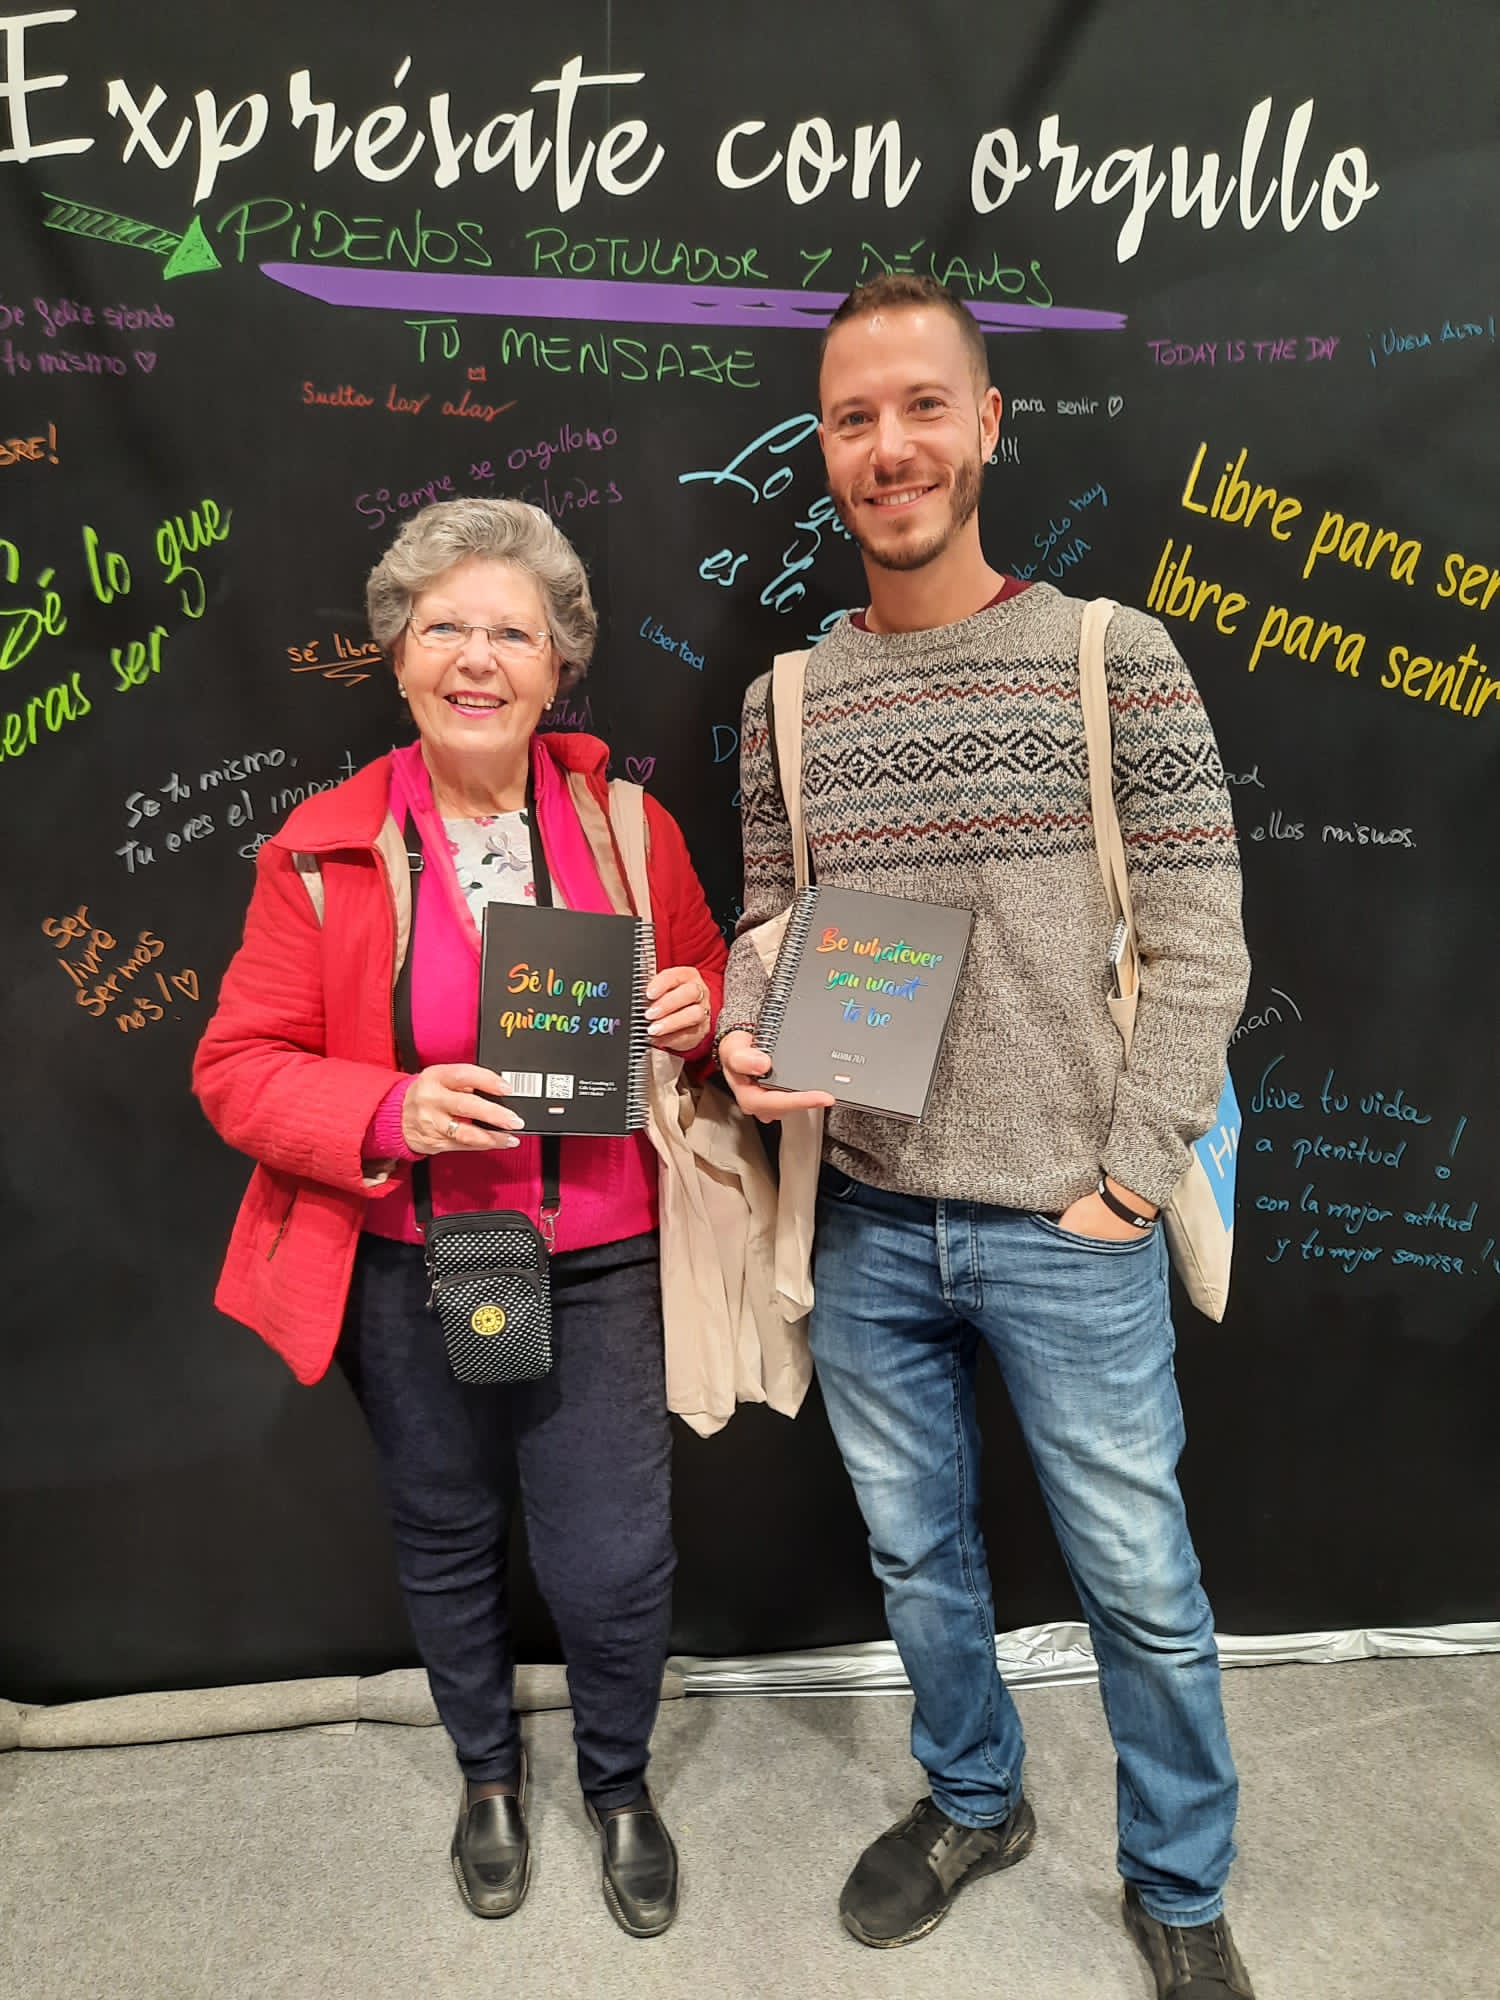 Exprésate con orgullo
PÍDENOS ROTULADOR Y DÉJANOS
TU MENSAJE
Se feliz siendo
tu mismo ♡
TODAY IS THE DAY
¡VUELA ALTO!
Suelta las alas
para sentir ♡
BRE!
Siempre se orgulloso
olvides
o!!!(
Sé lo que
ieras ser
Lo
es lo
Solo hay
UNA
Libre para ser
libre para sentir
sé libre
Libertad
Se tu mismo,
tu eres el import
ellos mismos.
ser
livre
sermos
nos! ♡
Sé lo que
quieras ser
28001 Madrid
Be whatever
you want
to be
AGENDA 2024
man)
Vive tu vida
a plenitud !
con la mejor actitud
y tu mejor sonrisa!!
SPORT
H